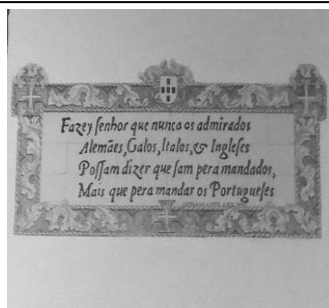 Fazey ſenhor que nunca os admirados
Alemães, Galos, Italos, & Ingleſes
Poſſam dizer que ſam pera mandados,
Mais que pera mandar os Portugueſes